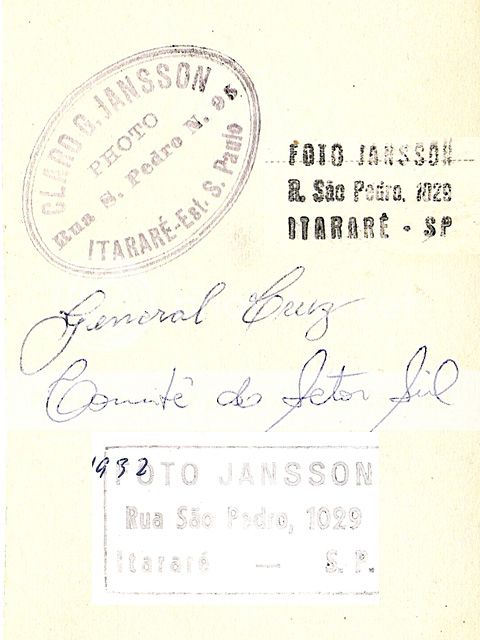 CLARO G. JANSSON
PHOTO
Rua S. Pedro N.
ITARARÉ-Est. S. Paulo
FOTO JANSSON
R. São Pedro, 1029
ITARARÉ - SP
General Cruz
Comitê do Setor Sul
1932
FOTO JANSSON
Rua São Pedro, 1029
Itararé — S. P.